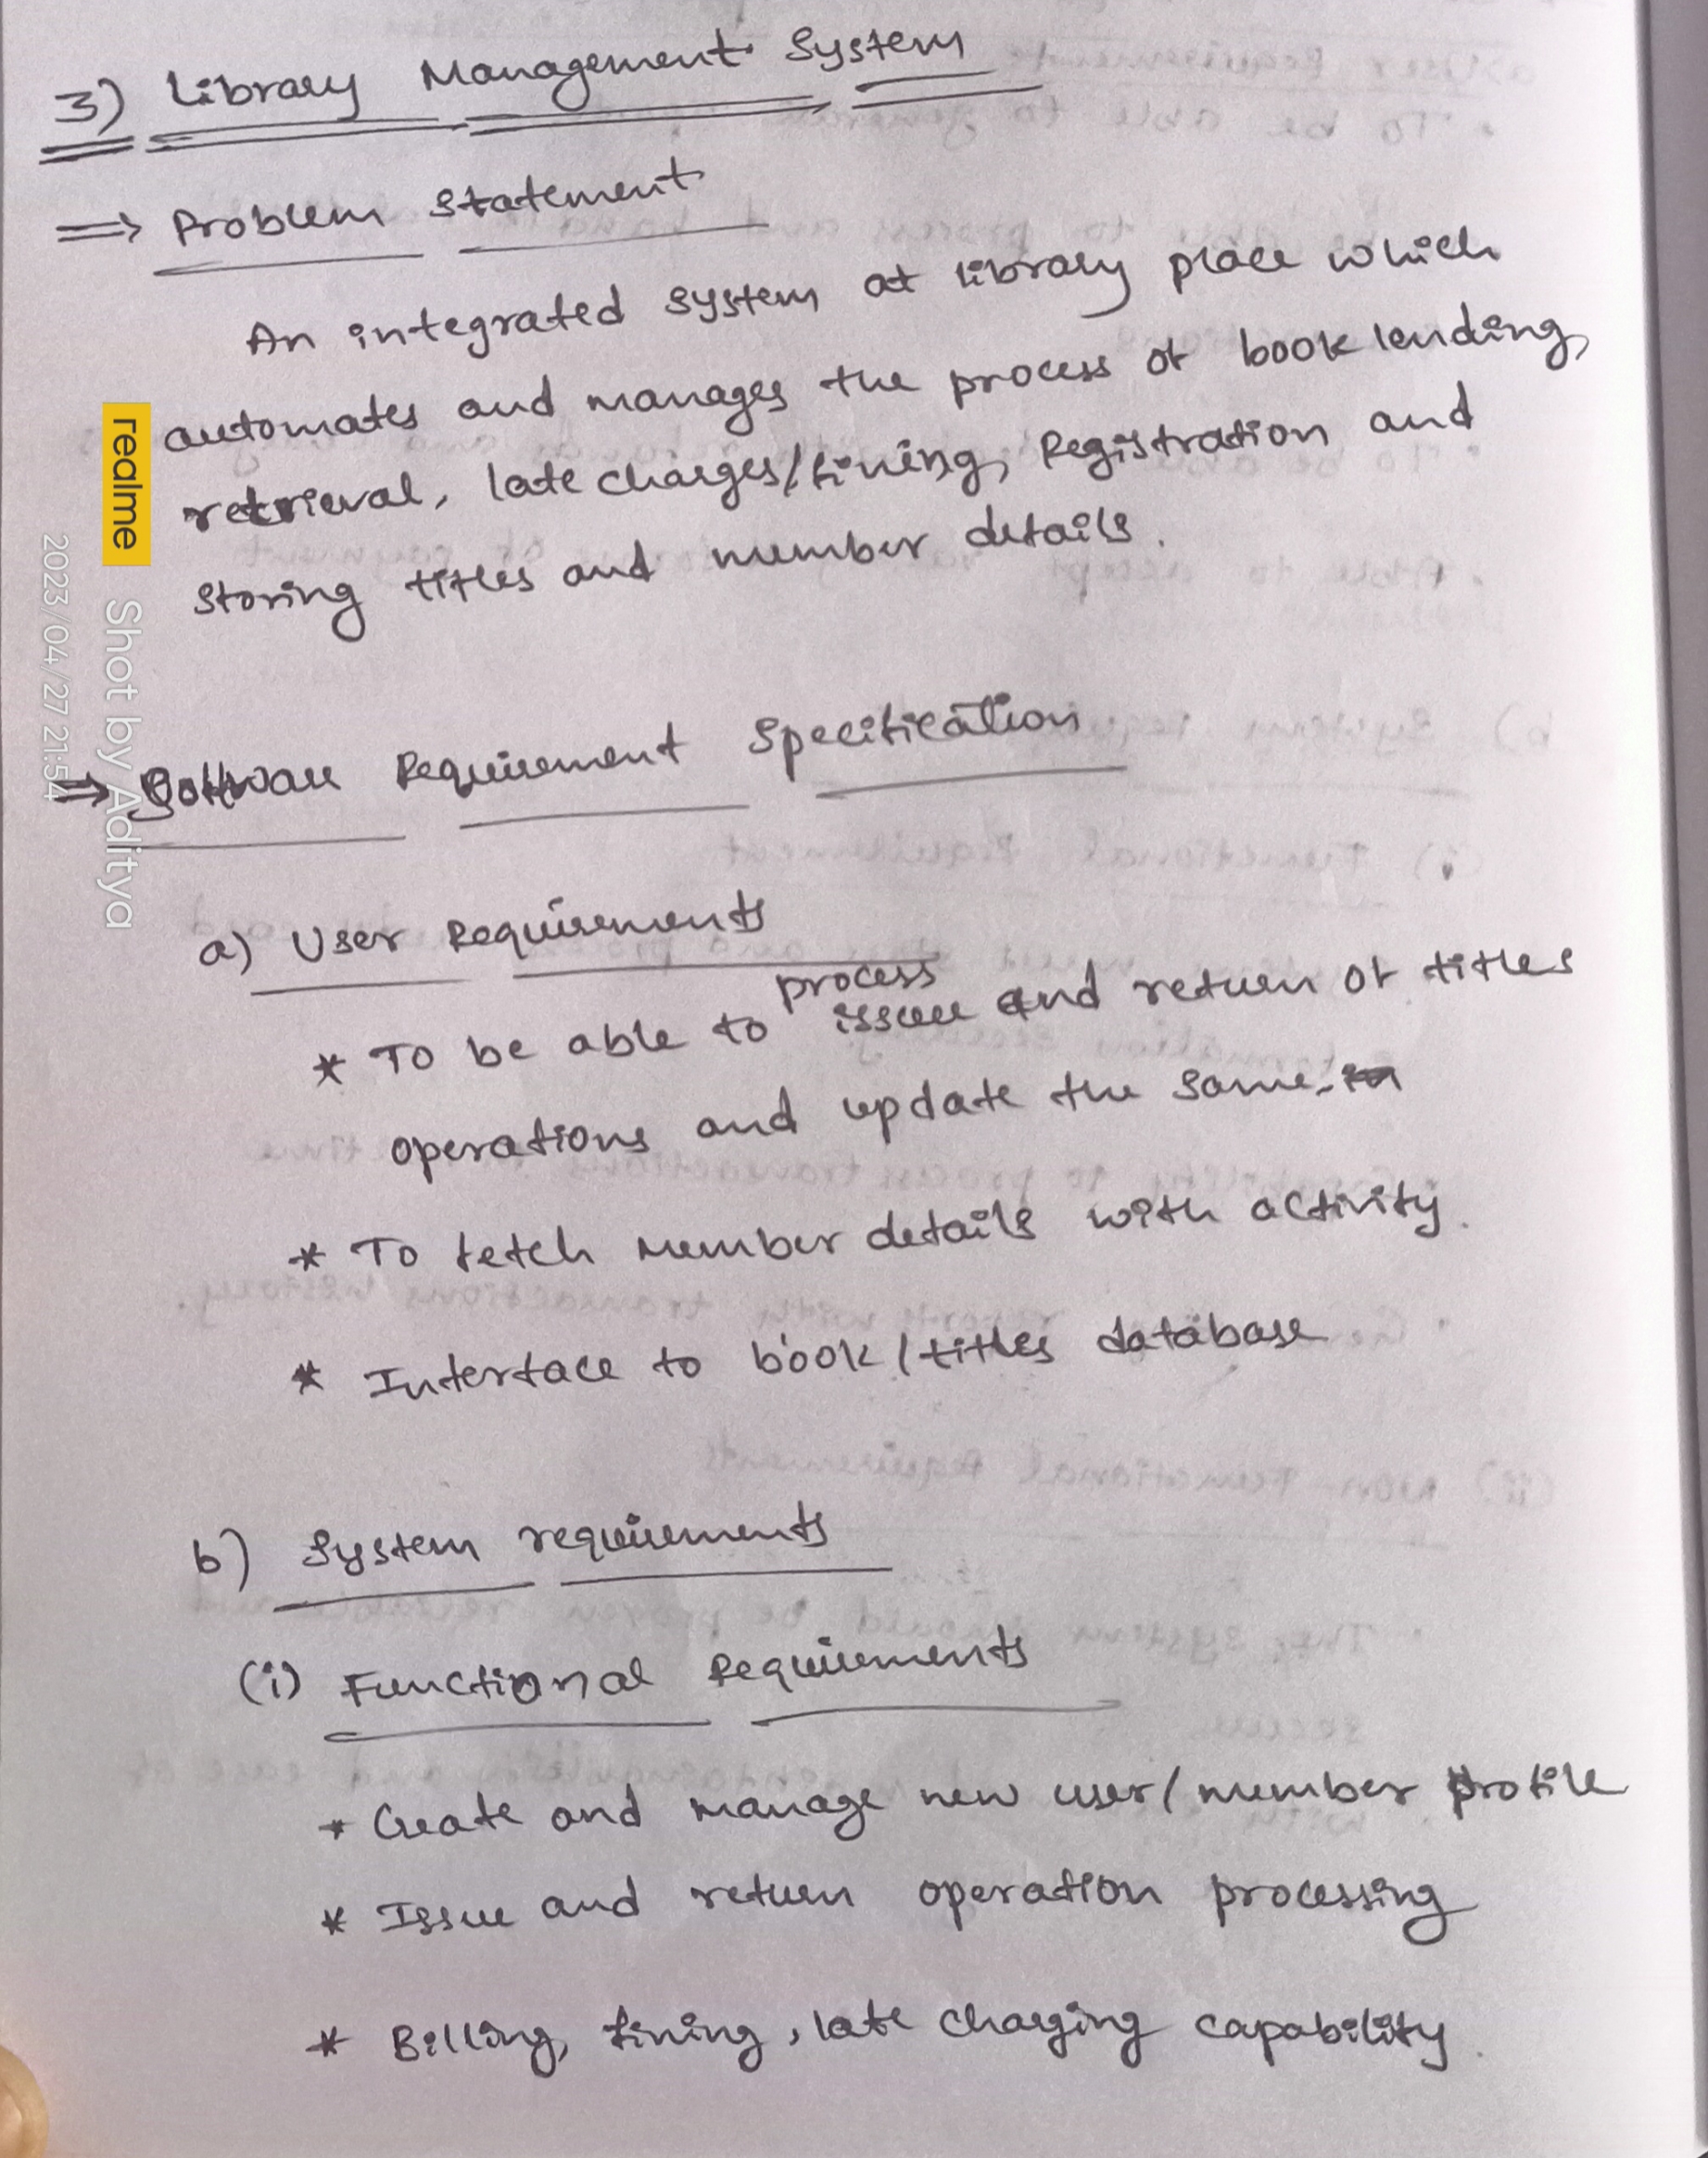 3) Library Management System
⇒ Problem Statement
An integrated system at library place which
automates and manages the process of book lending,
retrieval, late charges/fining, Registration and
storing titles and member details.
⇒ Software Requirement Specification
a) User Requirements
process
* To be able to issue and return of titles
operations and update the same.
* To fetch member details with activity.
* Interface to book/titles database
b) System requirements
(i) Functional Requirements
* Create and manage new user/member profile
* Issue and return operation processing
* Billing, fining, late charging capability.
realme Shot by Aditya
2023/04/27 21:54